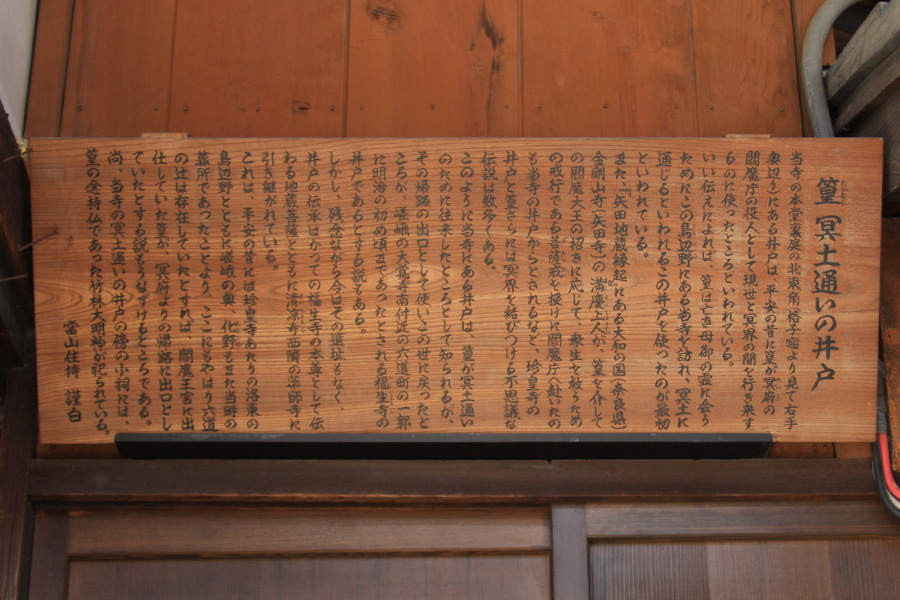 篁 冥土通いの井戸
当寺の本堂裏庭の北東角(格子窓より見て右手
奥辺り)にある井戸は、平安の昔に篁が冥府の
閻魔庁の役人として現世と冥界の間を行き来す
るのに使ったところといわれている。
いい伝えによれば、篁は亡き母御の霊に会う
ためにこの鳥辺野にある当寺を訪れ、冥土に
通じるといわれるこの井戸を使ったのが最初
といわれている。
また『矢田地蔵縁起』にある大和の国(奈良県)
金剛山寺(矢田寺)の満慶上人が、篁を介して
の閻魔大王の招きに応じて、衆生を救うため
の戒行である菩薩戒を授けに閻魔庁へ赴いたの
も当寺の井戸からとされるなど、珍皇寺の
井戸と篁さらには冥界を結びつける不思議な
伝説は数多くある。
このように当寺にある井戸は、篁が冥土通い
のために往来したところとして知られるが、
その帰路の出口として使いこの世に戻ったと
ころが、嵯峨の大覚寺南付近の六道町の一郭
に明治の初め頃まであったとされる福生寺の
井戸であるとする説がある。
しかし、残念ながら今はその遺址もなく、
井戸の伝承はかつての福生寺の本尊として伝
わる地蔵菩薩とともに清凉寺西隣の薬師寺に
引き継がれている。
これは、平安の昔には珍皇寺あたりの洛東の
鳥辺野とともに嵯峨の奥、化野もまた当時の
墓所であったことより、ここにもやはり六道
の辻は存在していたとすれば、閻魔王宮に出
仕していた篁が、冥府よりの帰路に出口とし
ていたとする説もうなずけるところである。
尚、当寺の冥土通いの井戸の傍の小祠には、
篁の念持仏であった竹林大明神が祀られている。
當山住持 謹白